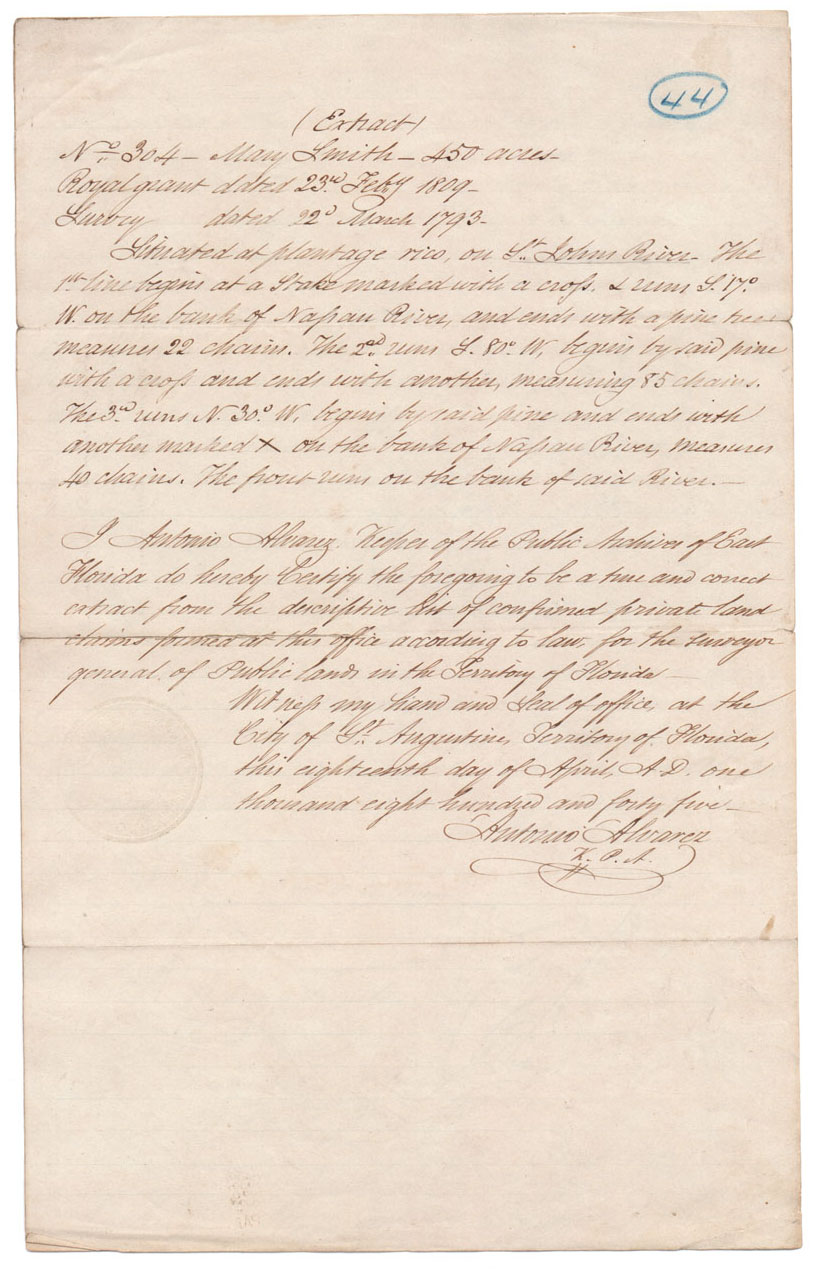 44
(Extract)
No. 304 - Mary Smith - 450 acres -
Royal grant dated 23rd Feby 1809 -
Survey dated 22d March 1793 -
Situated at plantage rico, on St. Johns River. The
1st line begins at a Stake marked with a cross. & runs S. 17°
W. on the bank of Nassau River, and ends with a pine tree
measures 22 chains. The 2nd. runs S. 80° W, begins by said pine
with a cross and ends with another, measuring 85 chains.
The 3rd runs N. 30° W, begins by said pine and ends with
another marked X on the bank of Nassau River, measures
40 chains. The front runs on the bank of said River. -
I Antonio Alvarez, Keeper of the Public Archives of East
Florida do hereby Certify the foregoing to be a true and correct
extract from the descriptive list of confirmed private land
claims formed at this office according to law, for the surveyor
general of Public lands in the Territory of Florida -
Witness my hand and Seal of office, at the
City of St. Augustine, Territory of Florida,
this eighteenth day of April, A.D. one
thousand eight hundred and forty five -
Antonio Alvarez
K. P. A.